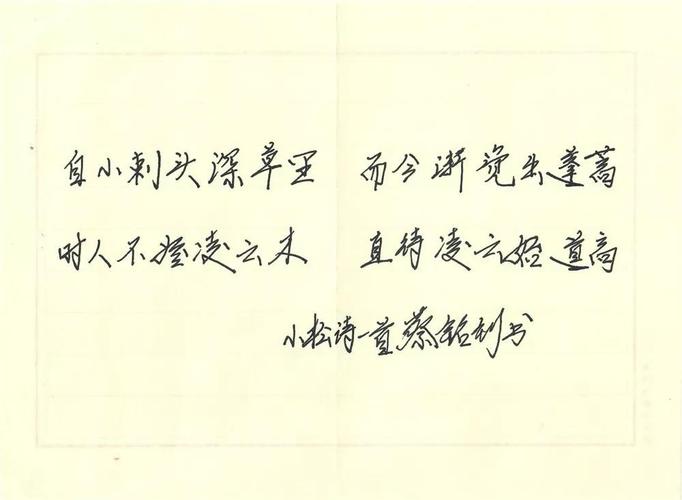 自小刺头深草里 而今渐觉出蓬蒿
时人不凌云木 直待凌云始道高
小松诗一首蔡铭利书